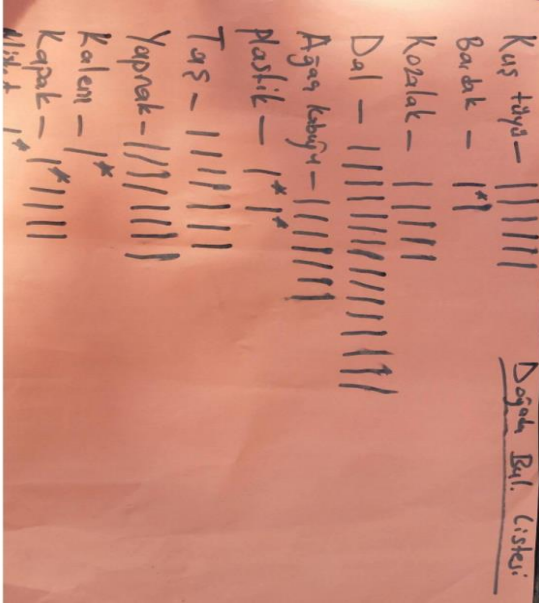 Doğada Bul. Listesi
Kuş tüyü – ||||||
Bardak – |*|
Kozalak – |||||
Dal – |||||||||||||||
Ağaç kabuğu – ||||||||
plastik – |* |*
Taş – |||||||
Yaprak – ||||||||
Kalem – |*
Kapak – |*||||